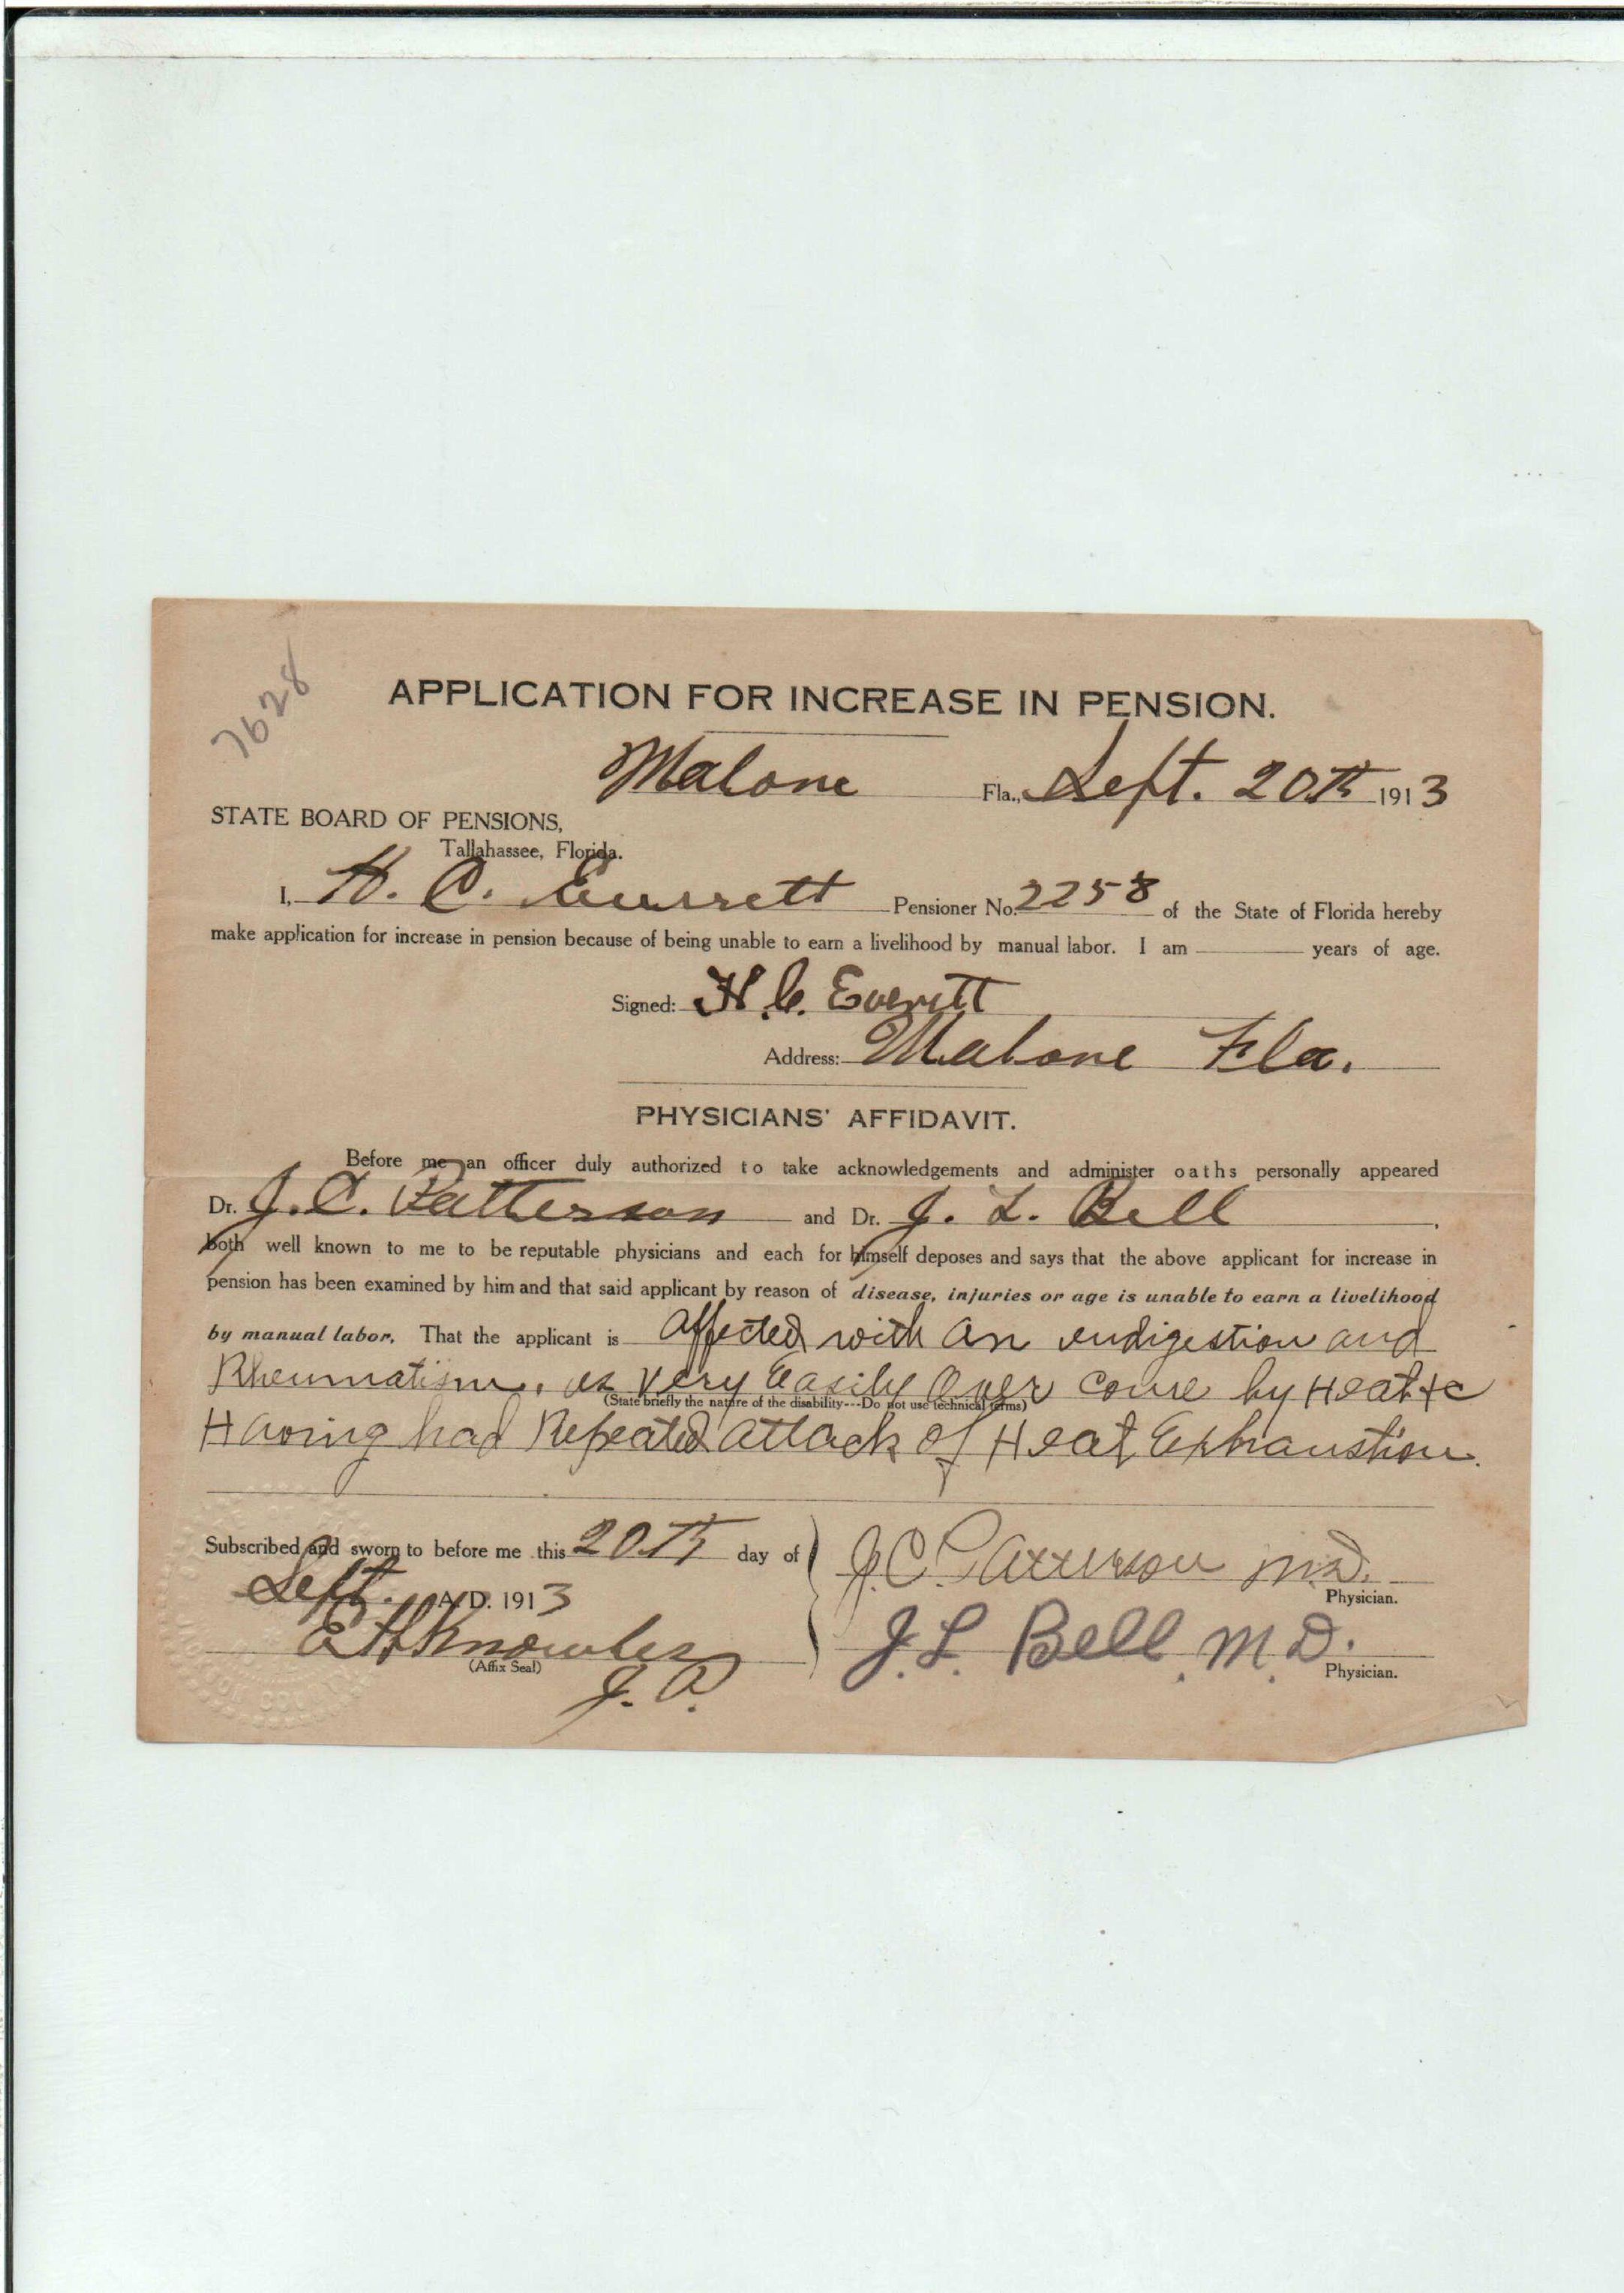 7628
APPLICATION FOR INCREASE IN PENSION.
Malone Fla., Sept. 20th 1913
STATE BOARD OF PENSIONS,
Tallahassee, Florida.
I, H. C. Everett Pensioner No. 2258 of the State of Florida hereby
make application for increase in pension because of being unable to earn a livelihood by manual labor. I am years of age.
Signed: H. C. Everitt
Address: Malone Fla.
PHYSICIANS' AFFIDAVIT.
Before me an officer duly authorized to take acknowledgements and administer oaths personally appeared
Dr. J. C. Patterson and Dr. J. L. Bell,
both well known to me to be reputable physicians and each for himself deposes and says that the above applicant for increase in
pension has been examined by him and that said applicant by reason of disease, injuries or age is unable to earn a livelihood
by manual labor. That the applicant is affected with an indigestion and
Rheumatism. is very Easily Over come by Heat &c
(State briefly the nature of the disability---Do not use technical terms)
Having had Repeated attack of Heat Exhaustion.
Subscribed and sworn to before me this 20th day of
Sept. A. D. 1913
J.C. Patterson M.D.
Physician.
E H Knowles
(Affix Seal)
J. P.
J. L. Bell, M. D.
Physician.